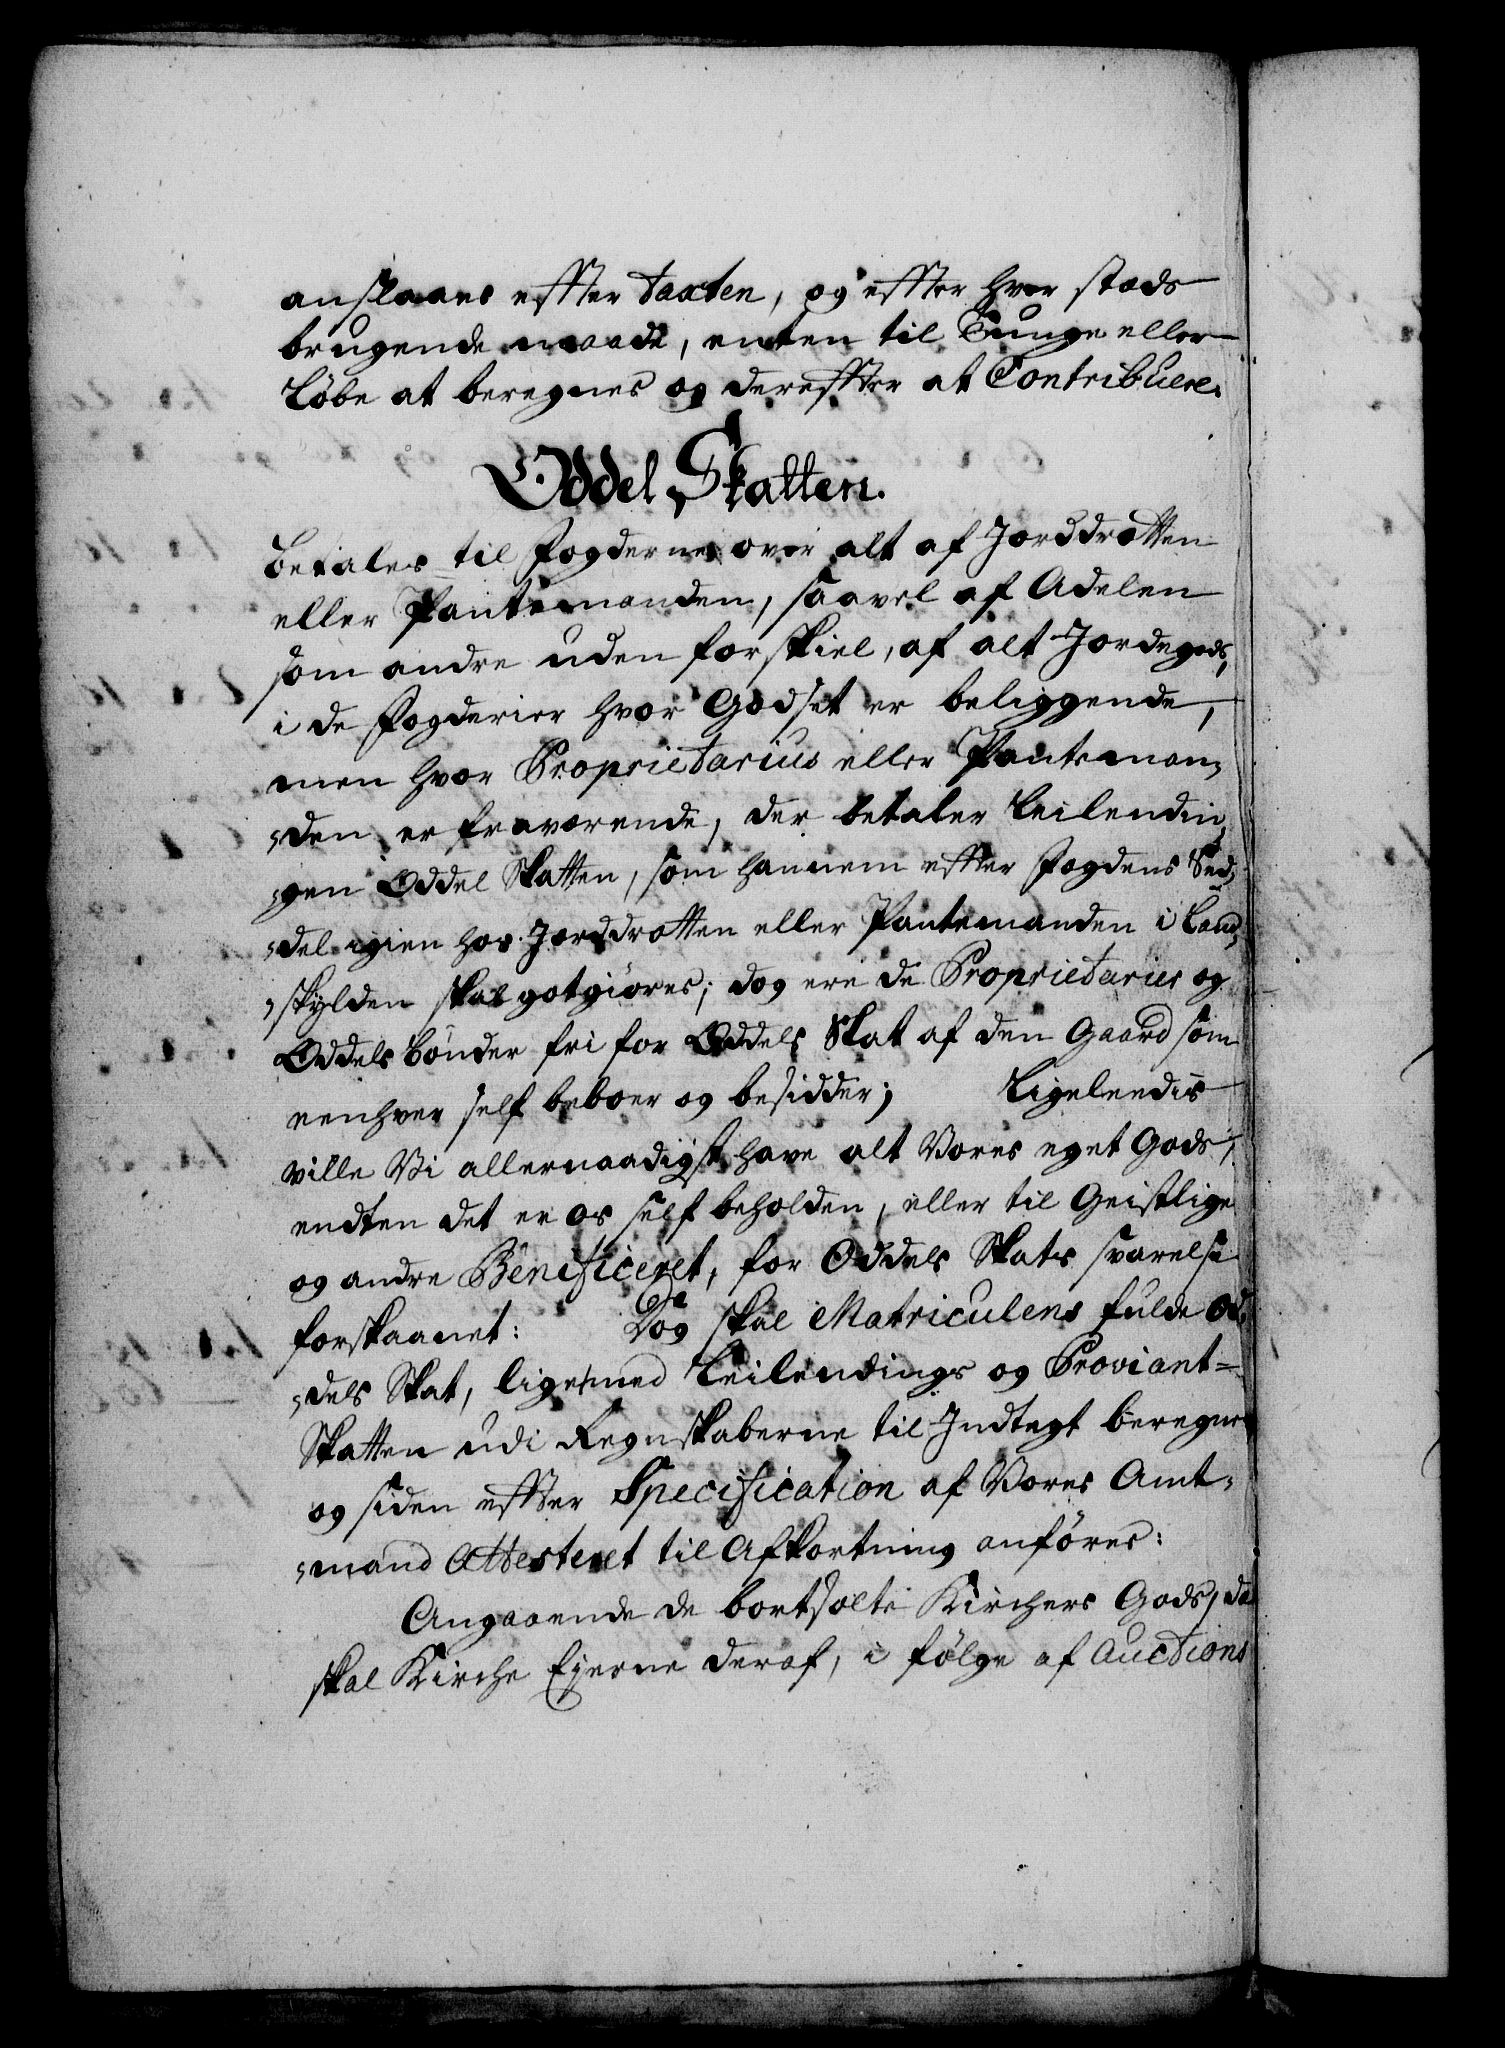 anslaaes effter Taxten, og effter hver stæds
brugende maade, enten til Tunge eller
Løbe at beregnes og dereffter at Contribuere.
Oddel Skatten.
Betales til Fogderne over alt af Jorddrotten
eller Pantemanden, saavel af Adelen
som andre uden forskiel, af alt Jordegods,
i de Fogderier hvor Godset er beliggende,
men hvor Proprietarius eller Panteman-
den er fraværende, der betaler Leilendin-
gen Oddel Skatten, som hannem effter Fogdens Sed-
del igien hos Jorddrotten eller Pantemanden i Land-
skylden skal gotgiøres; dog ere de Proprietarier og
Oddels bønder fri for Oddels Skat af den Gaard som
eenhver self beboer og besidder; Ligeleedis
ville Vi allernaadigst have alt Vores eget Gods,
endten det er os self beholden, eller til Geistlige
og andre Benificeret, for Oddels Skats svarelse
forskaanet: Dog skal Matriculens fulde Od-
dels Skat, ligesmed Leilendings og Proviant-
Skatten udi Regnskaberne til Indtegt beregnes
og siden effter Specification af Vores Amt-
mand Attesteret til Afkortning anføres:
Angaaende de bortsolte Kirchers Gods, da
skal Kirche Ejerne deraf, i følge af Auctions